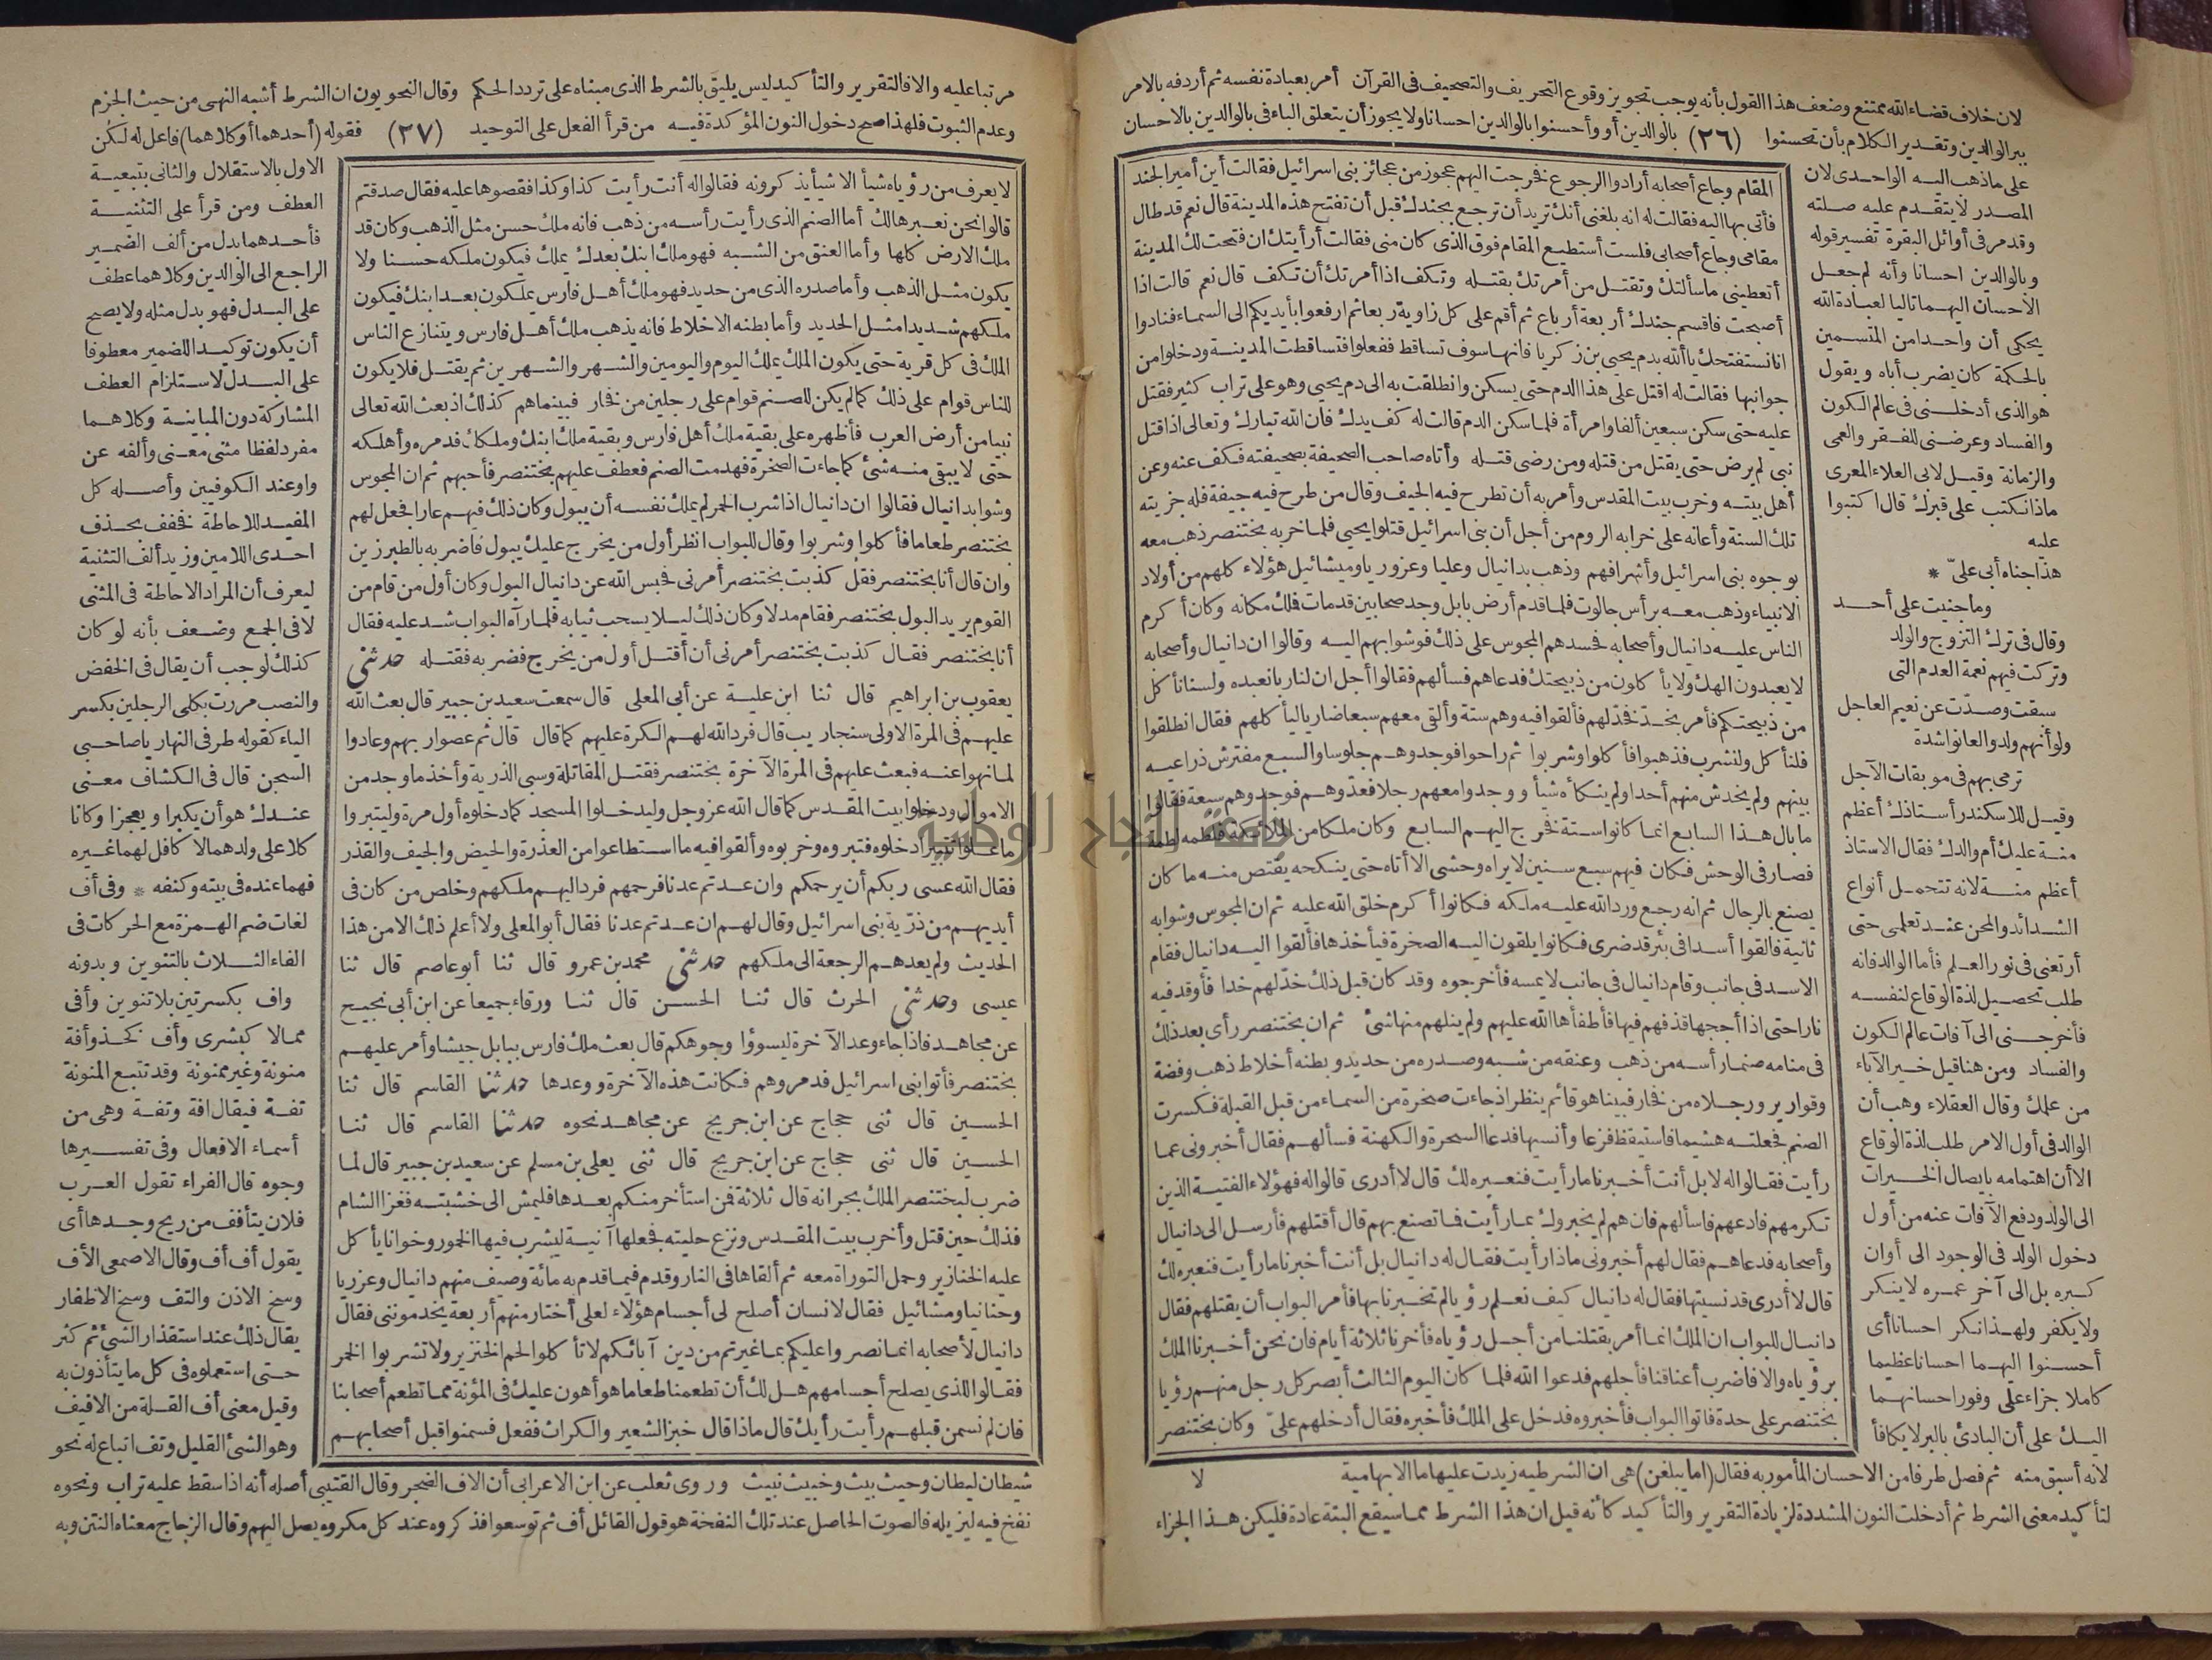 لان خلاف قضاء الله ممتنع وضعف هذا القول بأنه يوجب تجويز وقوع التحريف والتصحيف فى القرآن أمر بعبادة نفسه ثم أردفه بالامر
ببر الوالدين وتقدير الكلام بأن تحسنوا (٢٦) بالوالدين أو وأحسنوا بالوالدين احسانا ولا يجوز أن يتعلق الباء فى بالوالدين بالاحسان
على ما ذهب اليه الواحدى لان
المصدر لا يتقدم عليه صلته
وقد مر فى أوائل البقرة تفسير قوله
وبالوالدين احسانا وأنه لم جعل
الاحسان اليهما تاليا لعبادة الله
يحكى أن واحدا من المتسمين
بالحكمة كان يضرب أباه ويقول
هو الذى أدخلنى فى عالم الكون
والفساد وعرضنى للفقر والعمى
والزمانة وقيل لابى العلاء المعرى
ماذا نكتب على قبرك قال اكتبوا
عليه
هذا جناه أبى علىّ *
وما جنيت على أحد
وقال فى ترك التزوج والولد
وتركت فيهم نعمة العدم التى
سبقت وصدّت عن نعيم العاجل
ولو أنهم ولدوا لعانوا شدة
ترمى بهم فى موبقات الآجل
وقيل للاسكندر أستاذك أعظم
منة عليك أم والدك فقال الاستاذ
أعظم منة لانه تحمل أنواع
الشدائد والمحن عند تعلمى حتى
أرتعنى فى نور العلم فأما الوالد فانه
طلب تحصيل لذة الوقاع لنفسه
فأخرجنى الى آفات عالم الكون
والفساد ومن هنا قيل خير الآباء
من علمك وقال العقلاء وهب أن
الوالد فى أول الامر طلب لذة الوقاع
الا أن اهتمامه بايصال الخيرات
الى الولد ودفع الآفات عنه من أول
دخول الولد فى الوجود الى أوان
كبره بل الى آخر عمره لا ينكر
ولا يكفر ولهذا نكر احسانا أى
أحسنوا اليهما احسانا عظيما
كاملا جزاء على وفور احسانهما
اليك على أن البادئ بالبر لا يكافأ
المقام وجاع أصحابه أرادوا الرجوع فخرجت اليهم عجوز من عجائز بنى اسرائيل فقالت أين أمير الجند
فأتى بها اليه فقالت له انه بلغنى أنك تريد أن ترجع بجندك قبل أن تفتح هذه المدينة قال نعم قد طال
مقامى وجاع أصحابى فلست أستطيع المقام فوق الذى كان منى فقالت أرأيتك ان فتحت لك المدينة
أتعطينى ما سألتك وتقتل من أمرتك بقتله وتكف اذا أمرتك أن تكف قال نعم قالت اذا
أصبحت فاقسم جندك أربعة أرباع ثم أقم على كل زاوية ربعا ثم ارفعوا بأيديكم الى السماء فنادوا
انا نستفتحك يا ألله بدم يحيى بن زكريا فانها سوف تساقط ففعلوا فتساقطت المدينة ودخلوا من
جوانبها فقالت له اقتل على هذا الدم حتى يسكن وانطلقت به الى دم يحيى وهو على تراب كثير فقتل
عليه حتى سكن سبعين ألفا وامرأة فلما سكن الدم قالت له كف يدك فان الله تبارك وتعالى اذا قتل
نبى لم يرض حتى يقتل من قتله ومن رضى قتله وأتاه صاحب الصحيفة بصحيفته فكف عنه وعن
أهل بيته وخرب بيت المقدس وأمر به أن تطرح فيه الجيف وقال من طرح فيه جيفة فله جزيته
تلك السنة وأعانه على خرابه الروم من أجل أن بنى اسرائيل قتلوا يحيى فلما خربه بختنصر ذهب معه
بوجوه بنى اسرائيل وأشرافهم وذهب بدانيال وعليا وعزوريا وميشائيل هؤلاء كلهم من أولاد
الانبياء وذهب معه برأس جالوت فلما قدم أرض بابل وجد صحابين قد مات فملك مكانه وكان أكرم
الناس عليه دانيال وأصحابه فحسدهم المجوس على ذلك فوشوا بهم اليه وقالوا ان دانيال وأصحابه
لا يعبدون الهك ولا يأكلون من ذبيحتك فدعاهم فسألهم فقالوا أجل ان لنا ربا نعبده ولسنا نأكل
من ذبيحتكم فأمر بخدّ فخدّ لهم فألقوا فيه وهم ستة وألقى معهم سبعا ضاريا ليأكلهم فقال انطلقوا
فلنأكل ولنشرب فذهبوا فأكلوا وشربوا ثم راحوا فوجدوهم جلوسا والسبع مفترش ذراعيه
بينهم ولم يخدش منهم أحدا ولم ينكأه شيأ ووجدوا معهم رجلا فعدّوهم فوجدوهم سبعة فقالوا
ما بال هذا السابع انما كانوا ستة فخرج اليهم السابع وكان ملكا من الملائكة فلطمه لطمة
فصار فى الوحش فكان فيهم سبع سنين لا يراه وحشى الا أتاه حتى ينكحه يقتص منه ما كان
يصنع بالرجال ثم انه رجع ورد الله عليه ملكه فكانوا أكرم خلق الله عليه ثم ان المجوس وشوا به
ثانية فألقوا أسدا فى بئر قد ضرى فكانوا يلقون اليه الصخرة فيأخذها فألقوا اليه دانيال فقام
الاسد فى جانب وقام دانيال فى جانب لا يمسه فأخرجوه وقد كان قبل ذلك خدّ لهم خدا فأوقد فيه
نارا حتى اذا أججها قذفهم فيها فأطفأها الله عليهم ولم ينلهم منها شئ ثم ان بختنصر رأى بعد ذلك
فى منامه صنما رأسه من ذهب وعنقه من شبه وصدره من حديد وبطنه أخلاط ذهب وفضة
وقوارير ورجلاه من فخار فبينا هو قائم ينظر اذ جاءت صخرة من السماء من قبل القبلة فكسرت
الصنم فجعلته هشيما فاستيقظ فزعا وأنسيها فدعا السحرة والكهنة فسألهم فقال أخبرونى عما
رأيت فقالوا له لا بل أنت أخبرنا ما رأيت فنعبره لك قال لا أدرى قالوا له فهؤلاء الفتية الذين
تكرمهم فادعهم فاسألهم فان هم لم يخبروك بما رأيت فما تصنع بهم قال أقتلهم فأرسل الى دانيال
وأصحابه فدعاهم فقال لهم أخبرونى ماذا رأيت فقال له دانيال بل أنت أخبرنا ما رأيت فنعبره لك
قال لا أدرى قد نسيتها فقال له دانيال كيف نعلم رؤيا لم تخبرنا بها فأمر البواب أن يقتلهم فقال
دانيال للبواب ان الملك انما أمر بقتلنا من أجل رؤياه فأخرنا ثلاثة أيام فان نحن أخبرنا الملك
برؤياه والا فاضرب أعناقنا فأجلهم فدعوا الله فلما كان اليوم الثالث أبصر كل رجل منهم رؤيا
بختنصر على حدة فاتوا البواب فأخبروه فدخل على الملك فأخبره فقال أدخلهم علىّ وكان بختنصر
لا
لانه أسبق منه ثم فصل طرفا من الاحسان المأمور به فقال (اما يبلغن) هى ان الشرطيه زيدت عليها ما الابهامية
لتأكيد معنى الشرط ثم أدخلت النون المشددة لزيادة التقرير والتأكيد كأنه قيل ان هذا الشرط مما سيقع البتة عادة فليكن هذا الجزاء
مرتبا عليه والا فالتقرير والتأكيد ليس يليق بالشرط الذى مبناه على تردد الحكم وقال النحويون ان الشرط أشبه النهى من حيث الجزم
وعدم الثبوت فلهذا صح دخول النون المؤكدة فيه من قرأ الفعل على التوحيد (٢٧) فقوله (أحدهما أو كلاهما) فاعل له لكن
لا يعرف من رؤياه شيأ الا شيأ يذكرونه فقالوا له أنت رأيت كذا وكذا فقصوها عليه فقال صدقتم
قالوا نحن نعبرها لك أما الصنم الذى رأيت رأسه من ذهب فانه ملك حسن مثل الذهب وكان قد
ملك الارض كلها وأما العنق من الشبه فهو ملك ابنك بعدك يملك فيكون ملكه حسنا ولا
يكون مثل الذهب وأما صدره الذى من حديد فهو ملك أهل فارس يملكون بعد ابنك فيكون
ملكهم شديدا مثل الحديد وأما بطنه الاخلاط فانه يذهب ملك أهل فارس ويتنازع الناس
الملك فى كل قرية حتى يكون الملك يملك اليوم واليومين والشهر والشهرين ثم يقتل فلا يكون
للناس قوام على ذلك كما لم يكن للصنم قوام على رجلين من فخار فبينما هم كذلك اذ بعث الله تعالى
نبيا من أرض العرب فأظهره على بقية ملك أهل فارس وبقية ملك ابنك وملكك فدمره وأهلكه
حتى لا يبقى منه شئ كما جاءت الصخرة فهدمت الصنم فعطف عليهم بختنصر فأحبهم ثم ان المجوس
وشوا بدانيال فقالوا ان دانيال اذا شرب الخمر لم يملك نفسه أن يبول وكان ذلك فيهم عارا فجعل لهم
بختنصر طعاما فأكلوا وشربوا وقال للبواب انظر أول من يخرج عليك يبول فاضربه بالطبرزين
وان قال أنا بختنصر فقل كذبت بختنصر أمرنى فحبس الله عن دانيال البول وكان أول من قام من
القوم يريد البول بختنصر فقام مدلا وكان ذلك ليلا يسحب ثيابه فلما رآه البواب شد عليه فقال
أنا بختنصر فقال كذبت بختنصر أمرنى أن أقتل أول من يخرج فضربه فقتله حدثنى
يعقوب بن ابراهيم قال ثنا ابن علية عن أبى المعلى قال سمعت سعيد بن جبير قال بعث الله
عليهم فى المرة الاولى سنجاريب قال فرد الله لهم الكرة عليهم كما قال قال ثم عصوا ربهم وعادوا
لما نهوا عنه فبعث عليهم فى المرة الآخرة بختنصر فقتل المقاتلة وسبى الذرية وأخذ ما وجد من
الاموال ودخلوا بيت المقدس كما قال الله عز وجل وليدخلوا المسجد كما دخلوه أول مرة وليتبروا
ما علوا تتبيرا دخلوه فتبروه وخربوه وألقوا فيه ما استطاعوا من العذرة والحيض والجيف والقذر
فقال الله عسى ربكم أن يرحمكم وان عدتم عدنا فرحمهم فرد اليهم ملكهم وخلص من كان فى
أيديهم من ذرّية بنى اسرائيل وقال لهم ان عدتم عدنا فقال أبو المعلى ولا أعلم ذلك الا من هذا
الحديث ولم يعدهم الرجعة الى ملكهم حدثنى محمد بن عمرو قال ثنا أبو عاصم قال ثنا
عيسى وحدثنى الحرث قال ثنا الحسن قال ثنا ورقاء جميعا عن ابن أبى نجيح
عن مجاهد فاذا جاء وعد الآخرة ليسوؤا وجوهكم قال بعث ملك فارس ببابل جيشا وأمر عليهم
بختنصر فأتوا بنى اسرائيل فدمروهم فكانت هذه الآخرة ووعدها حدثنا القاسم قال ثنا
الحسين قال ثنى حجاج عن ابن جريج عن مجاهد نحوه حدثنا القاسم قال ثنا
الحسين قال ثنى حجاج عن ابن جريج قال ثنى يعلى بن مسلم عن سعيد بن جبير قال لما
ضرب لبختنصر الملك بجرانه قال ثلاثة فمن استأخر منكم بعدها فليمش الى خشبته فغزا الشام
فذلك حين قتل وأخرب بيت المقدس ونزع حليته فجعلها آنية ليشرب فيها الخمور وخوانا يأكل
عليه الخنازير وحمل التوراة معه ثم ألقاها فى النار وقدم فيما قدم به مائة وصيف منهم دانيال وعزريا
وحنانيا ومشائيل فقال لانسان أصلح لى أجسام هؤلاء لعلى أختار منهم أربعة يخدموننى فقال
دانيال لأصحابه انما نصروا عليكم بما غيرتم من دين آبائكم لا تأكلوا لحم الخنزير ولا تشربوا الخمر
فقالوا للذى يصلح أجسامهم هل لك أن تطعمنا طعاما هو أهون عليك فى المؤنة مما تطعم أصحابنا
فان لم نسمن قبلهم رأيت رأيك قال ماذا قال خبز الشعير والكراث ففعل فسمنوا قبل أصحابهم
الاول بالاستقلال والثانى بتبعية
العطف ومن قرأ على التثنية
فأحدهما بدل من ألف الضمير
الراجع الى الوالدين وكلاهما عطف
على البدل فهو بدل مثله ولا يصح
أن يكون توكيدا للضمير معطوفا
على البدل لاستلزام العطف
المشاركة دون المباينة وكلاهما
مفرد لفظا مثنى معنى وألفه عن
واو عند الكوفيين وأصله كل
المفيد للاحاطة فخفف بحذف
احدى اللامين وزيد ألف التثنية
ليعرف أن المراد الاحاطة فى المثنى
لا فى الجمع وضعف بأنه لو كان
كذلك لوجب أن يقال فى الخفض
والنصب مررت بكلى الرجلين بكسر
الياء كقوله طرفى النهار يا صاحبى
السجن قال فى الكشاف معنى
عندك هو أن يكبرا ويعجزا وكانا
كلا على ولدهما لا كافل لهما غيره
فهما عنده فى بيته وكنفه * وفى أف
لغات ضم الهمزة مع الحركات فى
الفاء الثلاث بالتنوين وبدونه
واف بكسرتين بلا تنوين وأفى
ممالا كبشرى وأف كخذ وأفة
منونة وغير منونة وقد تتبع المنونة
تفة فيقال افة وتفة وهى من
أسماء الافعال وفى تفسيرها
وجوه قال الفراء تقول العرب
فلان يتأفف من ريح وجدها أى
يقول أف أف وقال الاصمعى الأف
وسخ الاذن والتف وسخ الاظفار
يقال ذلك عند استقذار الشئ ثم كثر
حتى استعملوه فى كل ما يتأذون به
وقيل معنى أف القلة من الافيف
وهو الشئ القليل وتف اتباع له نحو
شيطان ليطان وحيث بيث وخبيث نبيث وروى ثعلب عن ابن الاعرابى أن الاف الضجر وقال القتيبى أصله أنه اذا سقط عليه تراب ونحوه
نفخ فيه ليزيله فالصوت الحاصل عند تلك النفخة هو قول القائل أف ثم توسعوا فذكروه عند كل مكروه يصل اليهم وقال الزجاج معناه النتن وبه
جامعة النجاح الوطنية